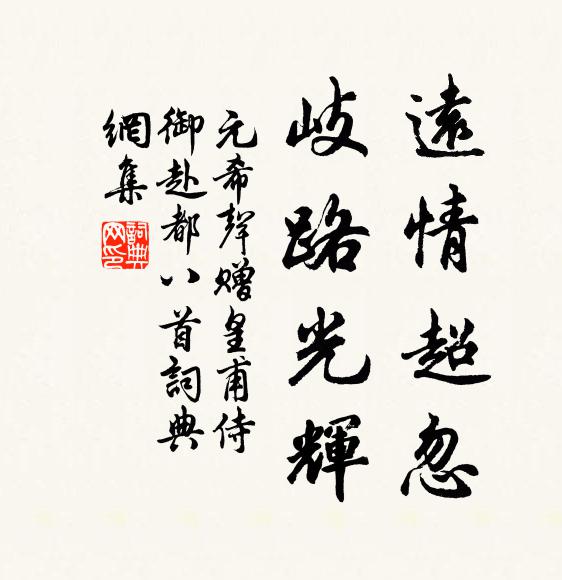 遠情超忽
岐路光輝
元希聲贈皇甫侍
御赴都八首詞典
網集
詞典
网印